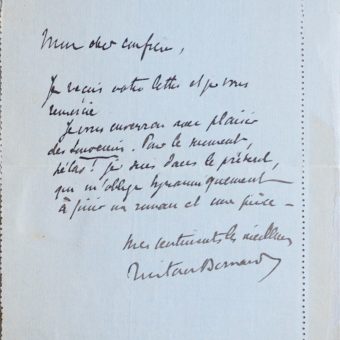 Mon cher confrère,
Je reçois votre lettre et je vous
remercie
Je vous enverrai avec plaisir
des souvenirs. Pour le moment,
hélas ! je suis dans le présent,
qui m'oblige tyranniquement
à finir un roman et une pièce –
Mes sentiments les meilleurs
Tristan Bernard